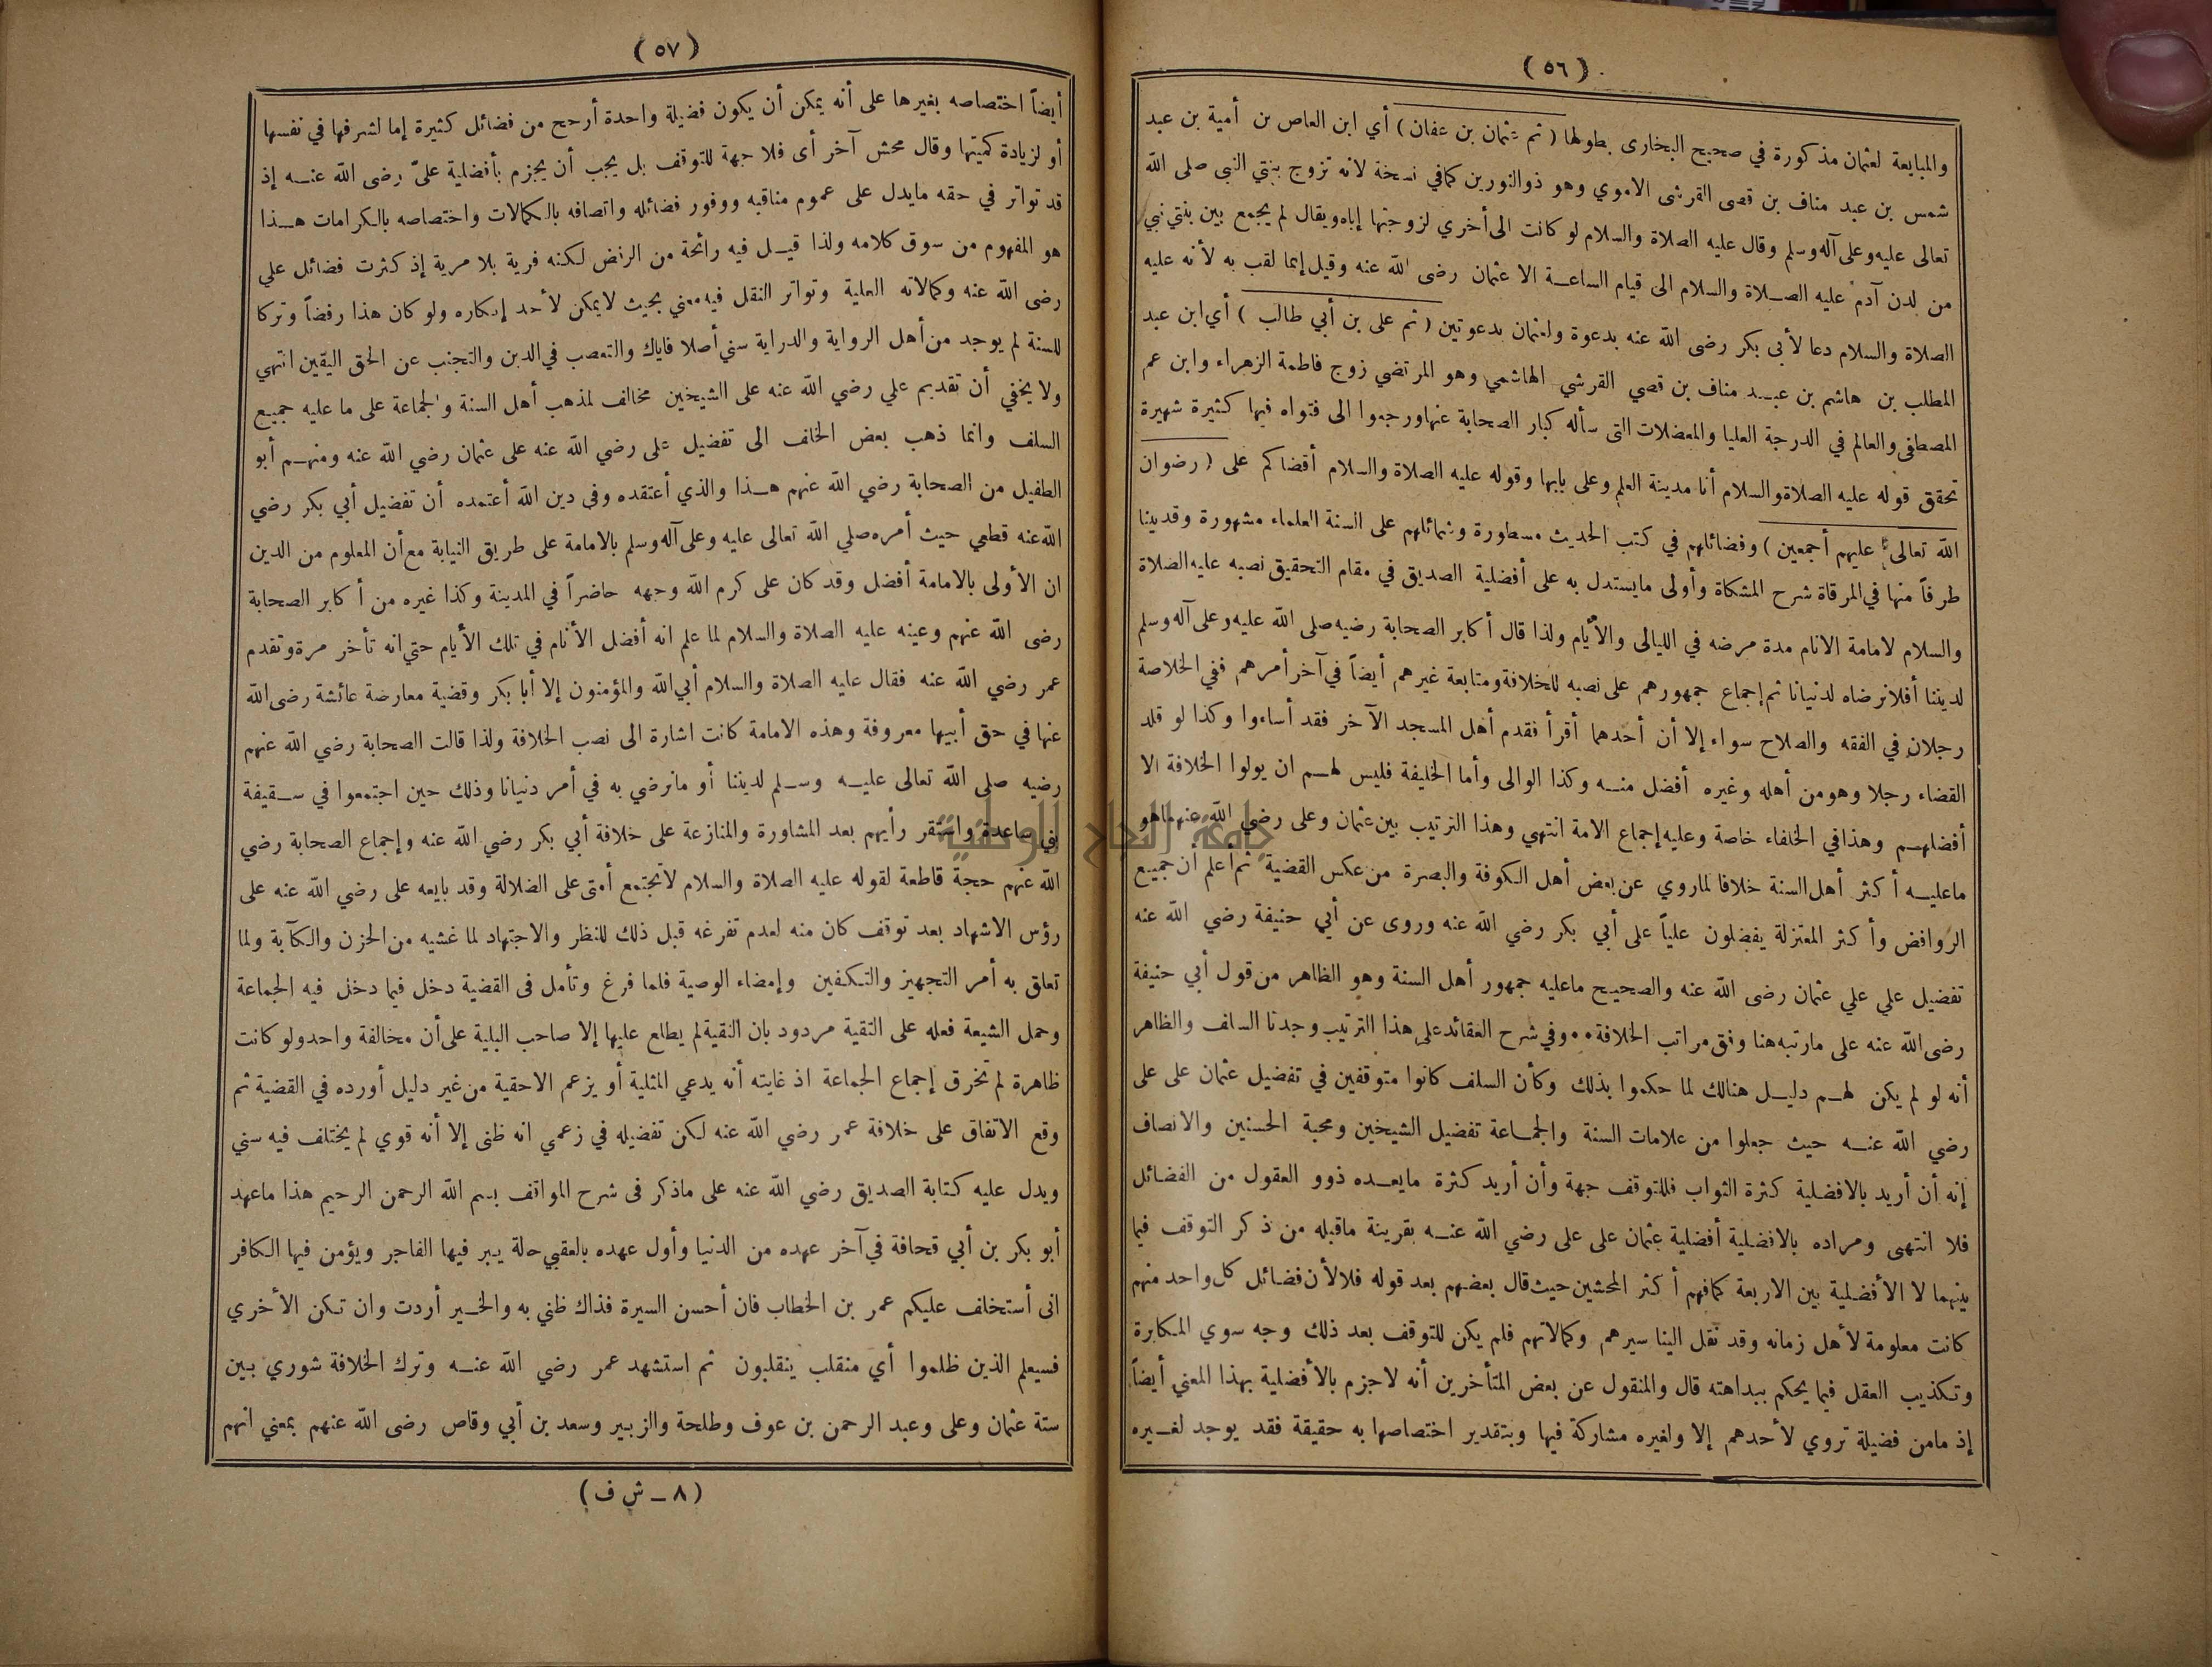 (٥٦)
والمبايعة لعثمان مذكورة في صحيح البخارى بطولها (ثم عثمان بن عفان) أي ابن العاص بن أمية بن عبد
شمس بن عبد مناف بن قصى القرشى الاموي وهو ذوالنورين كمافي نسخة لانه تزوج بنتي النبى صلى الله
تعالى عليه وعلى آله وسلم وقال عليه الصلاة والسلام لو كانت الى أخري لزوجتها إياه ويقال لم يجمع بين بنتي نبي
من لدن آدم عليه الصلاة والسلام الى قيام الساعة الا عثمان رضى الله عنه وقيل إنما لقب به لأنه عليه
الصلاة والسلام دعا لأبى بكر رضى الله عنه بدعوة ولعثمان بدعوتين (ثم على بن أبي طالب) أي ابن عبد
المطلب بن هاشم بن عبد مناف بن قصي القرشي الهاشمي وهو المرتضي زوج فاطمة الزهراء وابن عم
المصطفى والعالم في الدرجة العليا والمعضلات التى سأله كبار الصحابة عنها ورجعوا الى فتواه فيها كثيرة شهيرة
تحقق قوله عليه الصلاة والسلام أنا مدينة العلم وعلى بابها وقوله عليه الصلاة والسلام أقضاكم على (رضوان
الله تعالى عليهم أجمعين) وفضائلهم في كتب الحديث مسطورة وشمائلهم على السنة العلماء مشهورة وقدبينا
طرفاً منها في المرقاة شرح المشكاة وأولى مايستدل به على أفضلية الصديق في مقام التحقيق نصبه عليه الصلاة
والسلام لامامة الانام مدة مرضه في الليالى والأيام ولذا قال أكابر الصحابة رضيه صلى الله عليه وعلى آله وسلم
لديننا أفلا نرضاه لدنيانا ثم إجماع جمهورهم على نصبه للخلافة ومتابعة غيرهم أيضاً في آخر أمرهم ففي الخلاصة
رجلان في الفقه والصلاح سواء إلا أن أحدهما أقرأ فقدم أهل المسجد الآخر فقد أساءوا وكذا لو قلد
القضاء رجلا وهو من أهله وغيره أفضل منه وكذا الوالى وأما الخليفة فليس لهم ان يولوا الخلافة الا
أفضلهم وهذا في الخلفاء خاصة وعليه إجماع الامة انتهي وهذا الترتيب بين عثمان وعلى رضي الله عنهما هو
ماعليه أكثر أهل السنة خلافا لماروي عن بعض أهل الكوفة والبصرة من عكس القضية ثم أعلم أن جميع
الروافض وأكثر المعتزلة يفضلون علياً على أبي بكر رضي الله عنه وروى عن أبي حنيفة رضي الله عنه
تفضيل علي علي عثمان رضى الله عنه والصحيح ماعليه جمهور أهل السنة وهو الظاهر من قول أبي حنيفة
رضى الله عنه على مارتبه هنا وفق مراتب الخلافة •• وفي شرح العقائد على هذا الترتيب وجدنا السلف والظاهر
أنه لو لم يكن لهم دليل هنالك لما حكموا بذلك وكأن السلف كانوا متوقفين في تفضيل عثمان على على
رضي الله عنه حيث جعلوا من علامات السنة والجماعة تفضيل الشيخين ومحبة الحسنين والانصاف
إنه أن أريد بالافضلية كثرة الثواب فللتوقف جهة وأن أريد كثرة مايعده ذوو العقول من الفضائل
فلا انتهى ومراده بالافضلية أفضلية عثمان على على رضي الله عنه بقرينة ماقبله من ذكر التوقف فيما
بينهما لا الأفضلية بين الاربعة كمافهم أكثر المحشين حيث قال بعضهم بعد قوله فلا لأن فضائل كل واحد منهم
كانت معلومة لأهل زمانه وقد نقل الينا سيرهم وكمالاتهم فلم يكن للتوقف بعد ذلك وجه سوي المكابرة
وتكذيب العقل فيما يحكم ببداهته قال والمنقول عن بعض المتأخرين أنه لاجزم بالأفضلية بهذا المعني أيضاً
إذ مامن فضيلة تروي لأحدهم إلا ولغيره مشاركة فيها وبتقدير اختصاصها به حقيقة فقد يوجد لغيره
(٥٧)
أيضاً اختصاصه بغيرها على أنه يمكن أن يكون فضيلة واحدة أرجح من فضائل كثيرة إما لشرفها في نفسها
أو لزيادة كميتها وقال محش آخر أى فلا جهة للتوقف بل يجب أن يجزم بأفضلية علىّ رضى الله عنه إذ
قد تواتر في حقه مايدل على عموم مناقبه ووفور فضائله واتصافه بالكمالات واختصاصه بالكرامات هذا
هو المفهوم من سوق كلامه ولذا قيل فيه رائحة من الرفض لكنه فرية بلا مرية إذ كثرت فضائل علي
رضى الله عنه وكمالاته العلية وتواتر النقل فيه معني بحيث لايمكن لأحد إنكاره ولو كان هذا رفضاً وتركا
للسنة لم يوجد من أهل الرواية والدراية سني أصلا فاياك والتعصب في الدين والتجنب عن الحق اليقين انتهي
ولا يخفي أن تقديم علي رضي الله عنه على الشيخين مخالف لمذهب أهل السنة والجماعة على ما عليه جميع
السلف وانما ذهب بعض الخلف الى تفضيل على رضي الله عنه على عثمان رضي الله عنه ومنهم أبو
الطفيل من الصحابة رضي الله عنهم هذا والذي أعتقده وفى دين الله أعتمده أن تفضيل أبي بكر رضي
الله عنه قطعي حيث أمره صلي الله تعالى عليه وعلى آله وسلم بالامامة على طريق النيابة مع أن المعلوم من الدين
ان الأولى بالامامة أفضل وقد كان على كرم الله وجهه حاضراً في المدينة وكذا غيره من أكابر الصحابة
رضى الله عنهم وعينه عليه الصلاة والسلام لما علم انه أفضل الأنام في تلك الأيام حتي انه تأخر مرة وتقدم
عمر رضي الله عنه فقال عليه الصلاة والسلام أبي الله والمؤمنون إلا أبا بكر وقضية معارضة عائشة رضى الله
عنها في حق أبيها معروفة وهذه الامامة كانت اشارة الى نصب الخلافة ولذا قالت الصحابة رضي الله عنهم
رضيه صلى الله تعالى عليه وسلم لديننا أو مانرضي به في أمر دنيانا وذلك حين اجتمعوا في سقيفة
بني ساعدة واستقر رأيهم بعد المشاورة والمنازعة على خلافة أبي بكر رضي الله عنه وإجماع الصحابة رضي
الله عنهم حجة قاطعة لقوله عليه الصلاة والسلام لاتجتمع أمتى على الضلالة وقد بايعه على رضي الله عنه على
رؤس الاشهاد بعد توقف كان منه لعدم تفرغه قبل ذلك للنظر والاجتهاد لما غشيه من الحزن والكآبة ولما
تعلق به أمر التجهيز والتكفين وإمضاء الوصية فلما فرغ وتأمل فى القضية دخل فيما دخل فيه الجماعة
وحمل الشيعة فعله على التقية مردود بان التقية لم يطلع عليها إلا صاحب البلية على أن مخالفة واحد ولو كانت
ظاهرة لم تخرق إجماع الجماعة اذ غايته أنه يدعي المثلية أو يزعم الاحقية من غير دليل أورده في القضية ثم
وقع الاتفاق على خلافة عمر رضي الله عنه لكن تفضيله في زعمي انه ظنى إلا أنه قوي لم يختلف فيه سني
ويدل عليه كتابة الصديق رضي الله عنه على ماذكر فى شرح المواقف بسم الله الرحمن الرحيم هذا ماعهد
أبو بكر بن أبي قحافة في آخر عهده من الدنيا وأول عهده بالعقبي حالة يبر فيها الفاجر ويؤمن فيها الكافر
انى أستخلف عليكم عمر بن الخطاب فان أحسن السيرة فذاك ظني به والخير أردت وان تكن الأخري
فسيعلم الذين ظلموا أي منقلب ينقلبون ثم استشهد عمر رضي الله عنه وترك الخلافة شوري بين
ستة عثمان وعلى وعبد الرحمن بن عوف وطلحة والزبير وسعد بن أبي وقاص رضى الله عنهم بمعني انهم
(٨ ــ ش ف)
جامعة النجاح الوطنية